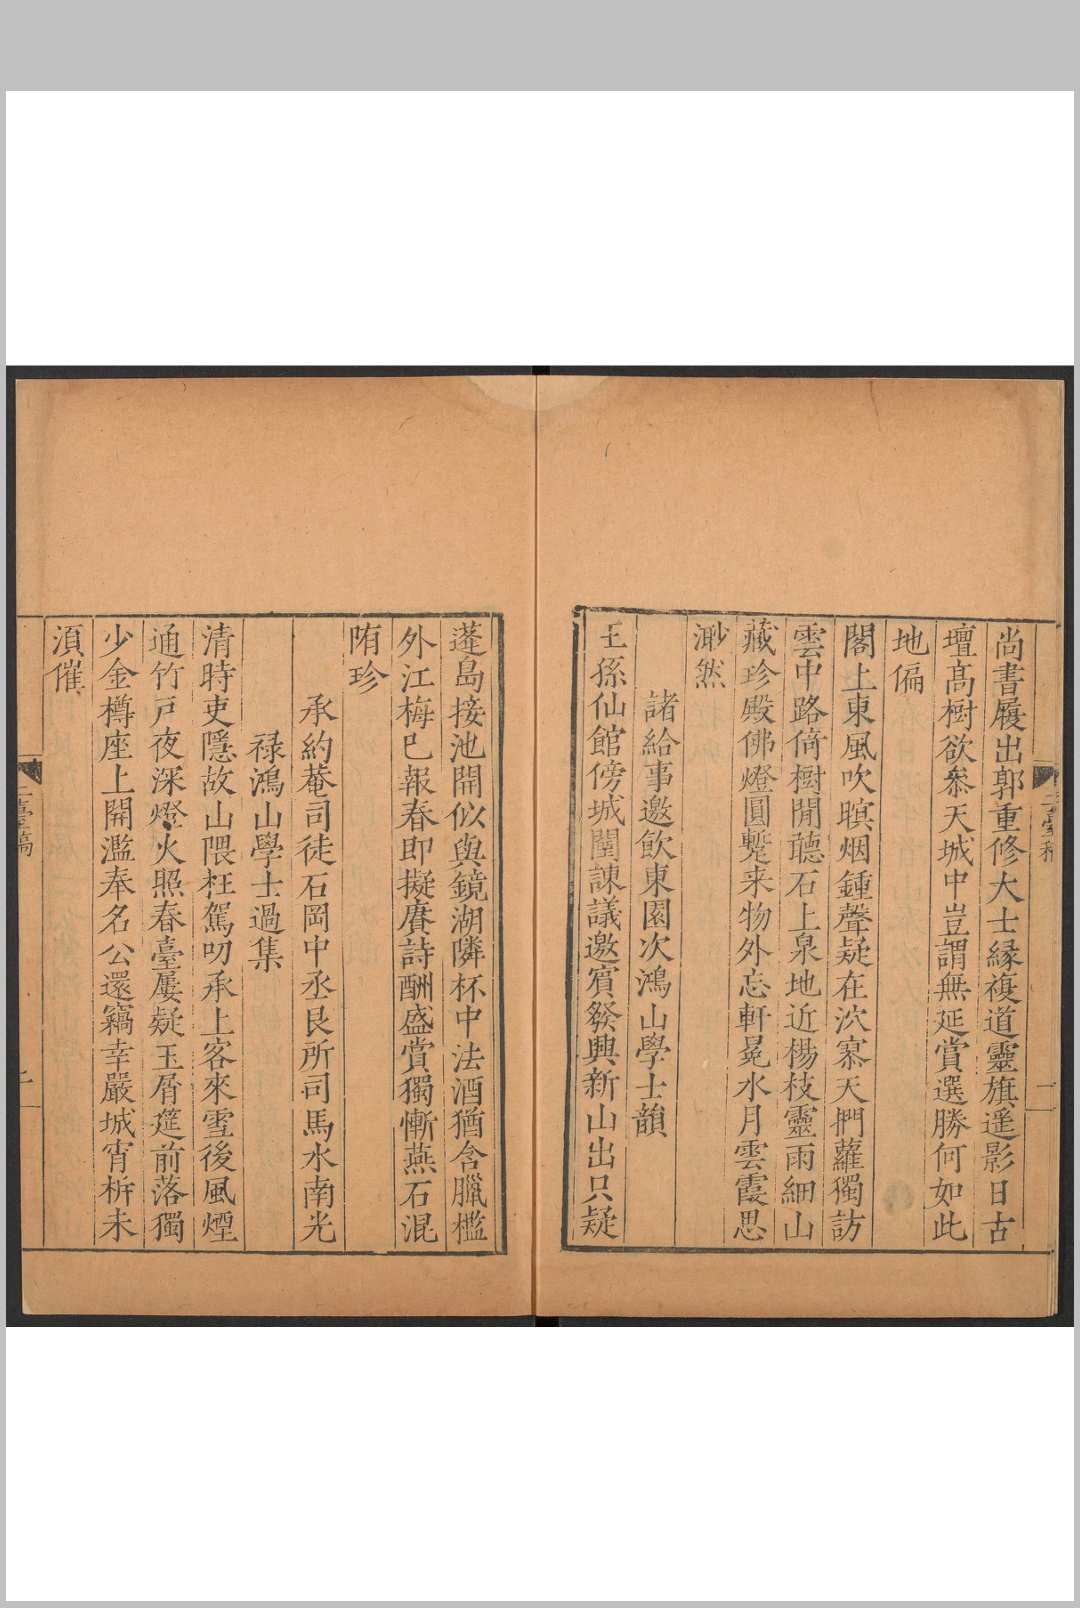 尚書履出郭重修大士縁複道靈旗遥影日古
壇髙樹欲叅天城中豈謂無延賞選勝何如此
地偏
閣上東風吹暝烟鍾聲疑在泬寥天捫蘿獨訪
雲中路倚樹閒聽石上泉地近楊枝靈雨細山
藏珍殿佛燈圓蹔来物外忘軒冕水月雲霞思
渺然
諸給事邀飲東園次鴻山學士韻
王孫仙館傍城闉諫議邀賓發興新山出只疑
蓬島接池開似與鏡湖隣杯中法酒猶含臘檻
外江梅已報春即擬賡詩酬盛賞獨慚燕石混
陏珍
承約菴司徒石岡中丞艮所司馬水南光
禄鴻山學士過集
清時吏隱故山隈枉駕叨承上客來雪後風煙
通竹戸夜深燈火照春臺屢疑玉屑筵前落獨
少金樽座上開濫奉名公還竊幸嚴城宵柝未
湏催